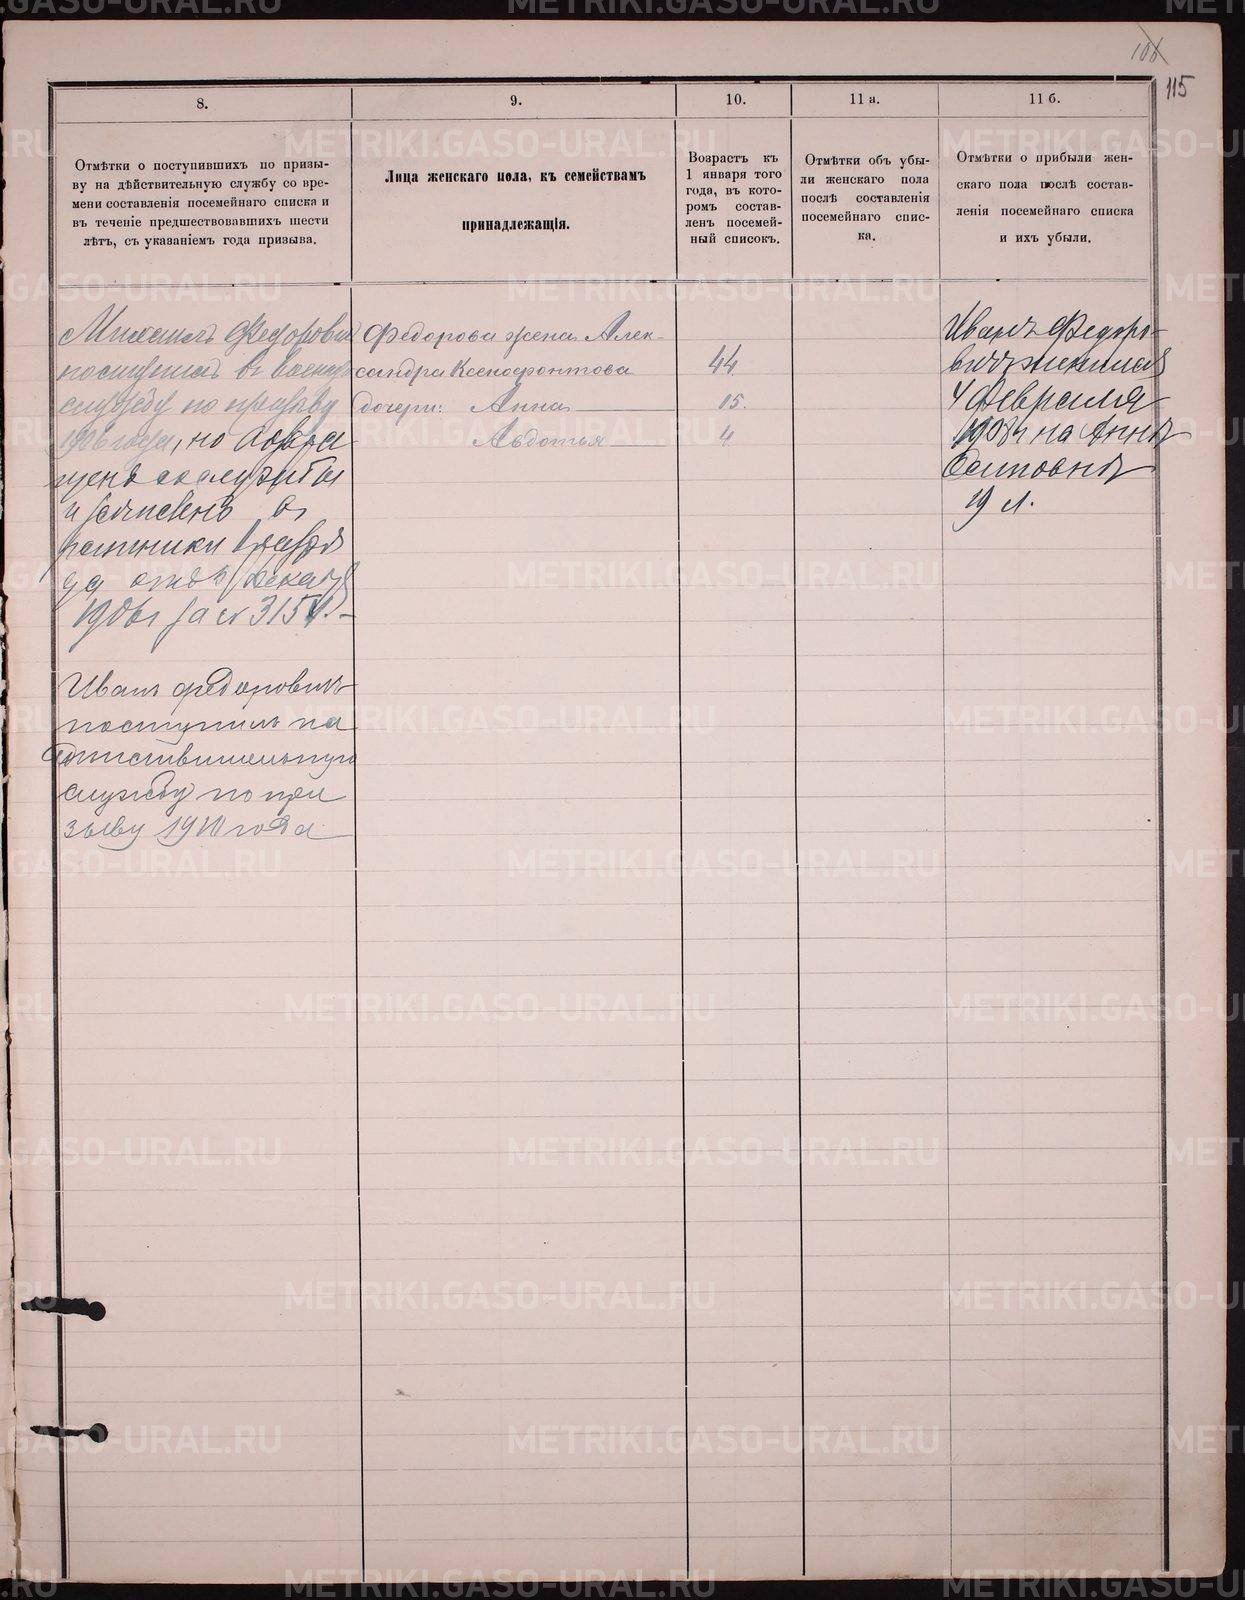 106
115
8.
9.
10.
11 а.
11 б.
Отмѣтки о поступившихъ по призы-
ву на дѣйствительную службу со вре-
мени составленія посемейнаго списка и
въ теченіе предшествовавшихъ шести
лѣтъ, съ указаніемъ года призыва.
Лица женскаго пола, къ семействамъ
принадлежащія.
Возрастъ къ
1 января того
года, въ кото-
ромъ состав-
ленъ посемей-
ный списокъ.
Отмѣтки объ убы-
ли женскаго пола
послѣ составленія
посемейнаго спис-
ка.
Отмѣтки о прибыли жен-
скаго пола послѣ состав-
ленія посемейнаго списка
и ихъ убыли.
Михаилъ Федоровичъ
поступилъ въ военную
службу по призыву
1906 года, но
службы
и зачисленъ въ
ратники
1906г за № 315
Иванъ Федоровичъ
поступилъ на
дѣйствительную
службу по при
зыву 1910 года
Федорова жена Алек-
сандра Ксенофонтова 44
дочери: Анна 15.
Авдотья 4
Иванъ Федоро-
вичъ женился
4 Февраля
1908г на Аннѣ
Осиповнѣ
19 л.
METRIKI.GASO-URAL.RU